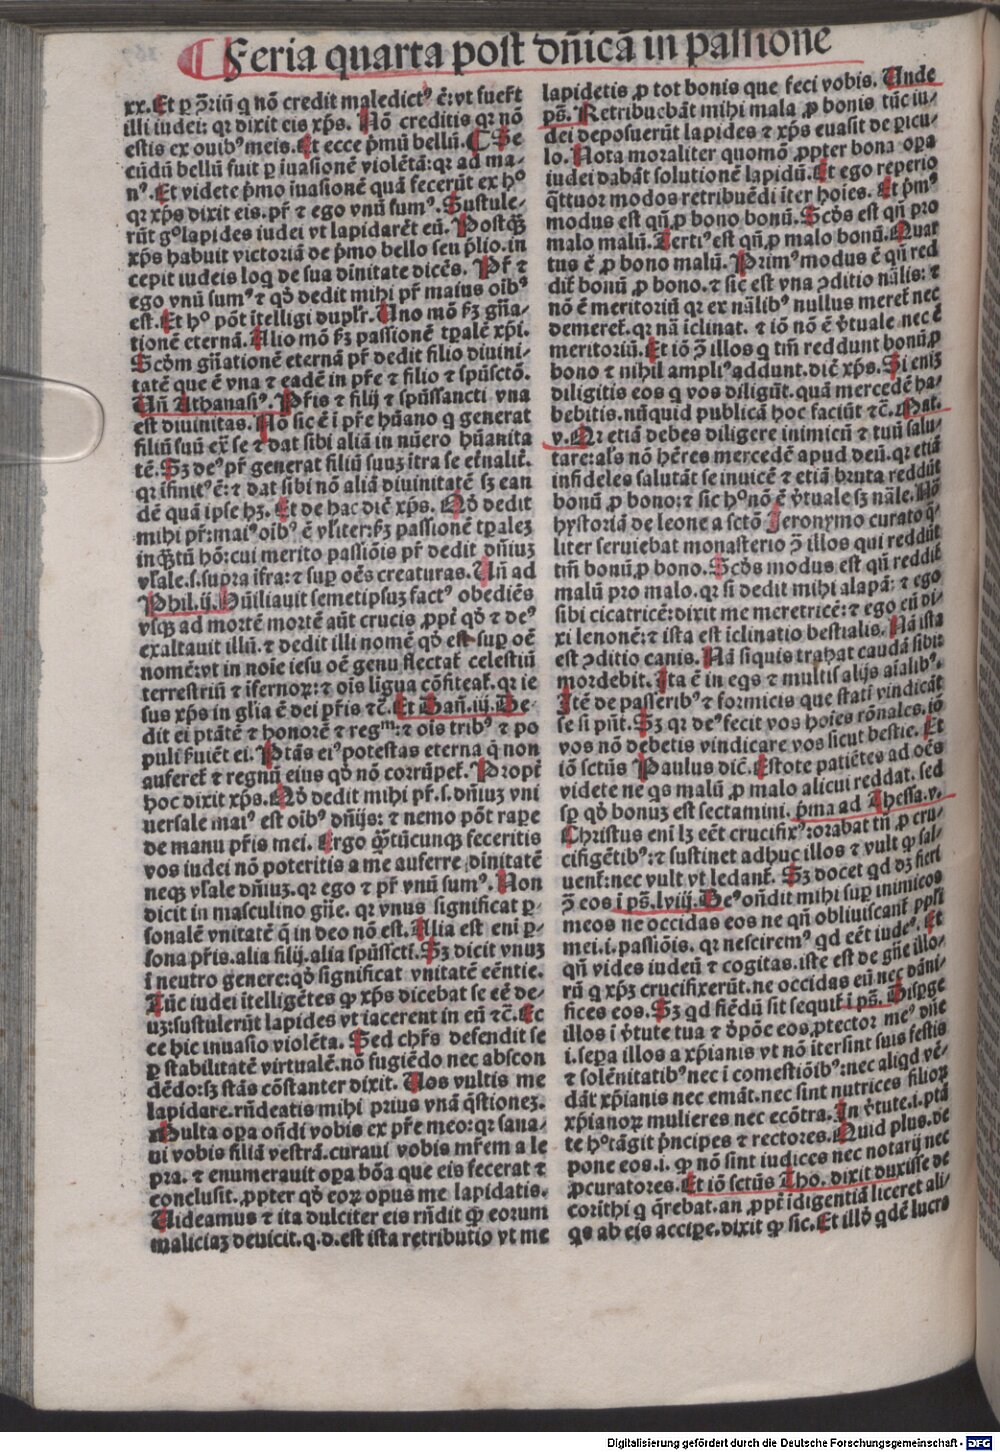 Feria quarta post dñicã in passione
xx. Et p ↄ̃riũ q nõ credit maledictꝰ ẽ: vt fuer̃t
illi iudei: qꝛ dixit eis xp̃s. Nõ creditis qꝛ nõ
estis ex ouibꝰ meis. Et ecce p̃mũ bellũ. ¶ Se
cũdũ bellũ fuit ꝑ iuasionẽ violẽtã: qꝛ ad ma-
nꝰ. Et videte p̃mo iuasionẽ quã fecerũt ex hͦ
qꝛ xp̃s dixit eis. pr̃ ⁊ ego vnũ sumꝰ. Sustule-
rũt gͦ lapides iudei vt lapidarẽt eũ. Postq̃
xp̃s habuit victoriã de p̃mo bello seu p̃lio. in
cepit iudeis loq̃ de sua dinitate dicẽs. Pr̃ ⁊
ego vnũ sumꝰ ⁊ qð dedit mihi pr̃ maius oibꝰ
est. Et hͦ põt ĩtelligi duplr̃. Uno mõ ẜm gña-
tionẽ eternã. Alio mõ ẜm passionẽ tp̃alẽ xp̃i.
Scðm gñationẽ eternã pr̃ dedit filio diuini-
tatẽ que ẽ vna ⁊ eadẽ in pr̃e ⁊ filio ⁊ spũsctõ.
Uñ Athanasiꝰ. Pr̃is ⁊ filij ⁊ spũssancti vna
est diuinitas. Nõ sic ẽ ĩ pr̃e hũano q generat
filiũ suũ ex̃ se ⁊ dat sibi aliã in nũero hũanita
tẽ. Sꝫ deꝰ pr̃ generat filiũ suuꝫ ĩtra se et̃nalit̃.
qꝛ ĩfinitꝰ ẽ: ⁊ dat sibi nõ aliã diuinitatẽ sꝫ ean
dẽ quã ipse hꝫ. Et de hac dic̃ xp̃s. Qð dedit
mihi pr̃: maiꝰ oibꝰ ẽ vl̃iter: ẜm passionẽ tp̃aleꝫ
inq̃tũ hõ: cui merito passiõis pr̃ dedit dñiuꝫ
vl̃sale. s. supra ĩfra: ⁊ suꝑ oẽs creaturas. Uñ ad
Phil. ij. Hũiliauit semetipsuꝫ factꝰ obediẽs
vsqꝫ ad mortẽ mortẽ aũt crucis ꝓpt̃ qð ⁊ deꝰ
exaltauit illũ. ⁊ dedit illi nomẽ qð est suꝑ oẽ
nomẽ: vt in noie iesu oẽ genu flectat̃ celestiũ
terrestriũ ⁊ ĩfernoꝝ: ⁊ oĩs ligua cõfiteat̃. qꝛ ie
sus xp̃s in gl̃ia ẽ dei pr̃is ⁊c̃. Et Dañ. iij. De-
dit ei ptãtẽ ⁊ honorẽ ⁊ regᵐ: ⁊ oĩs tribꝰ ⁊ po
puli ẜuiẽt ei. Ptãs eiꝰ potestas eterna q̃ non
auferet̃ ⁊ regnũ eius qð nõ corrũpet̃. Propt̃
hoc dixit xp̃s. Qð dedit mihi pr̃. s. dñiuꝫ vni
uersale maiꝰ est oibꝰ dñijs: ⁊ nemo põt raꝑe
de manu pr̃is mei. Ergo q̃tũcunqꝫ feceritis
vos iudei nõ poteritis a me auferre dinitatẽ
neqꝫ vl̃sale dñiuꝫ. qꝛ ego ⁊ pr̃ vnũ sumꝰ. Non
dicit in masculino gñe. qꝛ vnus significat ꝑ-
sonalẽ vnitatẽ q̃ in deo nõ est. Alia est eni ꝑ-
sona pr̃is. alia filij. alia spũsscti. Sꝫ dicit vnuꝫ
ĩ neutro genere: qð significat vnitatẽ eẽntie.
Tũc iudei ĩtelligẽtes ꝙ xp̃s dicebat se eẽ de-
uꝫ: sustulerũt lapides vt iacerent in eũ ⁊c̃. Ec
ce hic inuasio violẽta. Sed chr̃s defendit se
ꝑ stabilitatẽ virtualẽ. nõ fugiẽdo nec abscon
dẽdo: sꝫ stãs cõstanter dixit. Uos vultis me
lapidare. rñdeatis mihi prius vnã q̃stioneꝫ.
Multa oꝑa oñdi vobis ex pr̃e meo: qꝛ sana-
ui vobis filiã vestrã. curaui vobis mr̃em a le
pra. ⁊ enumerauit oꝑa bõa que eis fecerat ⁊
conclusit. ꝓpter qð eoꝝ opus me lapidatis.
Uideamus ⁊ ita dulciter eis rñdit ꝙ eorum
maliciaꝫ deuicit. q. d. est ista retributio vt me
lapidetis ꝓ tot bonis que feci vobis. Unde
pš. Retribuebãt mihi mala ꝓ bonis tũc iu-
dei deposuerũt lapides ⁊ xp̃s euasit de picu-
lo. Nota moraliter quomõ ꝓpter bona oꝑa
iudei dabãt solutionẽ lapidũ. Et ego reperio
q̃ttuor modos retribuẽdi ĩter hoĩes. Et p̃mꝰ
modus est qñ ꝓ bono bonũ. Scðs est qñ pro
malo malũ. Tertiꝰ est qñ ꝓ malo bonũ. Quar
tus ẽ ꝓ bono malũ. Primꝰ modus ẽ qñ red
dit̃ bonũ ꝓ bono. ⁊ sic est vna ↄditio nãlis: ⁊
nõ ẽ meritoriũ qꝛ ex nãlibꝰ nullus meret̃ nec
demeret̃. qꝛ nã ĩclinat. ⁊ iõ nõ ẽ ṽtuale nec ẽ
meritoriũ. Et iõ ↄ̃ illos q tm̃ reddunt bonũ ꝓ
bono ⁊ nihil ampliꝰ addunt. dic̃ xp̃s. Si eniꝫ
diligitis eos q vos diligũt. quã mercedẽ ha-
bebitis. nũquid publicã hoc faciũt ⁊c̃. Mat.
v. Qꝛ etiã debes diligere inimicũ ⁊ tuũ salu-
tare: als̃ nõ hẽres mercedẽ apud deũ. qꝛ etiã
infideles salutãt se inuicẽ ⁊ etiã bruta reddũt
bonũ ꝓ bono: ⁊ sic hͦ nõ ẽ ṽtuale sꝫ nãle. Nõ
hystoriã de leone a sctõ Jeronymo curato q̃-
liter seruiebat monasterio ↄ̃ illos qui reddũt
tm̃ bonũ ꝓ bono. Scðs modus est qñ reddit̃
malũ pro malo. qꝛ si dedit mihi alapã: ⁊ ego
sibi cicatricẽ: dixit me meretricẽ: ⁊ ego eũ di-
xi lenonẽ: ⁊ ista est ĩclinatio bestialis. Nã ista
est ↄditio canis. Nã siquis trahat caudã sibi:
mordebit. Ita ẽ in eqs ⁊ multis alijs aĩalibꝰ.
Itẽ de passeribꝰ ⁊ formicis que statĩ vindicãt
se si pñt. Sꝫ qꝛ deꝰ fecit vos hoĩes rõnales. iõ
vos nõ debetis vindicare vos sicut bestie. Et
iõ sctũs Paulus dic̃. Estote patiẽtes ad oẽs
videte ne qs malũ ꝓ malo alicui reddat. sed
sꝑ qð bonuꝫ est sectamini. p̃ma ad Thessa. v.
Christus eni lꝫ eẽt crucifixꝰ: orabat tñ ꝓ cru-
cifigẽtibꝰ: ⁊ sustinet adhuc illos ⁊ vult ꝙ sal-
uent̃: nec vult vt ledant̃. Sꝫ docet qd dꝫ fieri
ↄ̃ eos ĩ pš. lviij. Deꝰ oñdit mihi suꝑ inimicos
meos ne occidas eos ne qñ obliuiscant̃ ppl̃i
mei. i. passiõis. qꝛ nesciremꝰ qd eẽt iudeꝰ. Et
qñ vides iudeũ ⁊ cogitas. iste est de gñe illo-
rũ q xp̃ꝫ crucifixerũt. ne occidas eũ nec dãni-
fices eos. Sꝫ qd fiẽdũ sit sequit̃ ĩ pš. Disꝑge
illos ĩ ṽtute tua ⁊ d̃põe eos ꝓtector meꝰ dñe
i. seꝑa illos a xp̃ianis vt nõ ĩtersint suis festis
⁊ solẽnitatibꝰ nec ĩ comestiõibꝰ: nec aliqd vẽ-
dãt xp̃ianis nec emãt. nec sint nutrices filioꝝ
xp̃ianoꝝ mulieres nec ecõtra. In ṽtute. i. ptã
te hͦ tãgit p̃ncipes ⁊ rectores. Quid plus. de
pone eos. i. ꝙ nõ sint iudices nec notarij nec
ꝓcuratores. Et iõ sctũs Tho. dixit duxisse de
corithi q q̃rebat. an ꝓpt̃ ĩdigentiã liceret ali-
qs ab eis accipe. dixit ꝙ sic. Et illð qdẽ lucro
Digitalisierung gefördert durch die Deutsche Forschungsgemeinschaft - DFG